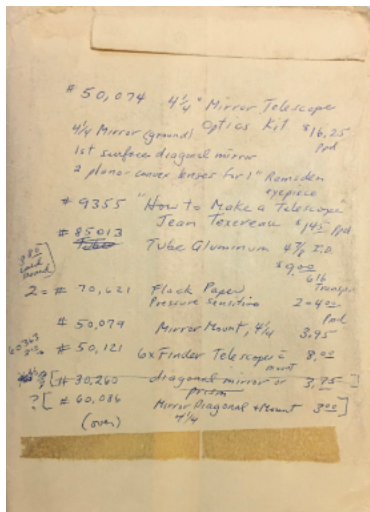 # 50,074 4 1/4" Mirror Telescope
Optics Kit $16.25
4 1/4 Mirror (ground) ppd
1st surface diagonal mirror
2 plano-convex lenses for 1" Ramsden
eyepiece
# 9355 "How to Make a Telescope"
Jean Texereau $ ppd
# 85013 Tube Aluminum 4 7/8 I.D.
Tube $9.00
6 lb
2 = # 70,621 Flock Paper
Pressure sensitive 2 = 4.00
ppd
# 50,079 Mirror Mount, 4 1/4 3.95
# 50,121 6x Finder Telescope = 8.00
mount
? [# 30,260 diagonal mirror or 3.75
prism
? [ # 60,086 Mirror Diagonal + Mount 3.00 ]
4 1/4
(over)